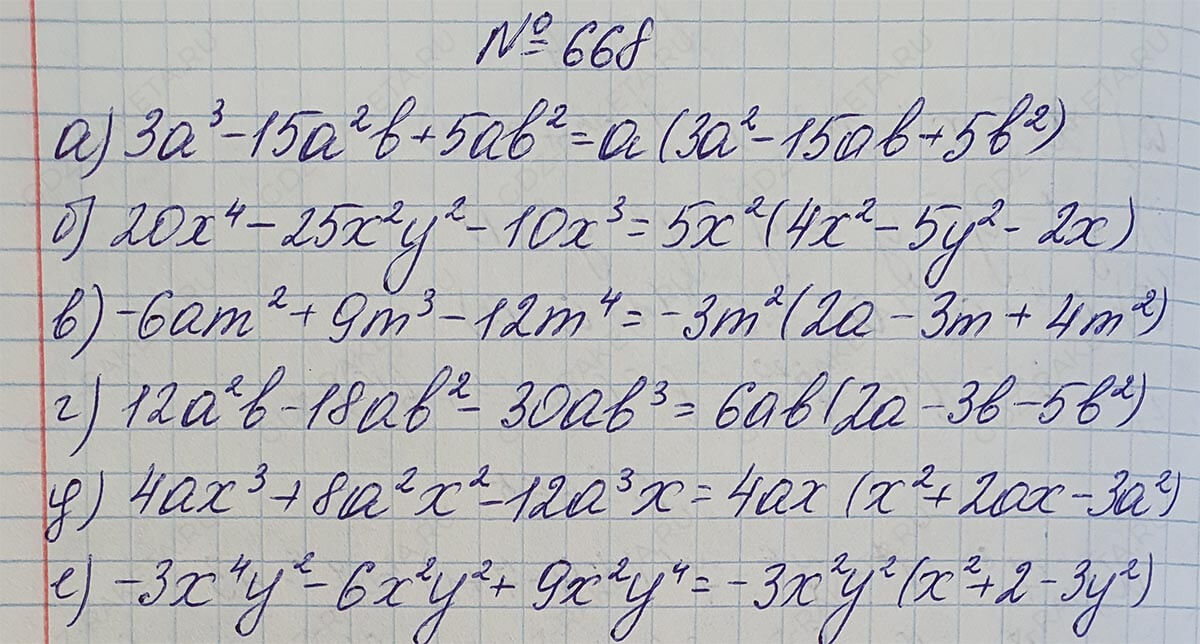 № 668
а) 3a³-15a²b+5ab²=a(3a²-15ab+5b²)
б) 20x⁴-25x²y²-10x³=5x²(4x²-5y²-2x)
в) -6am²+9m³-12m⁴=-3m²(2a-3m+4m²)
г) 12a²b-18ab²-30ab³=6ab(2a-3b-5b²)
д) 4ax³+8a²x²-12a³x=4ax(x²+2ax-3a²)
е) -3x⁴y²-6x²y²+9x²y⁴=-3x²y²(x²+2-3y²)